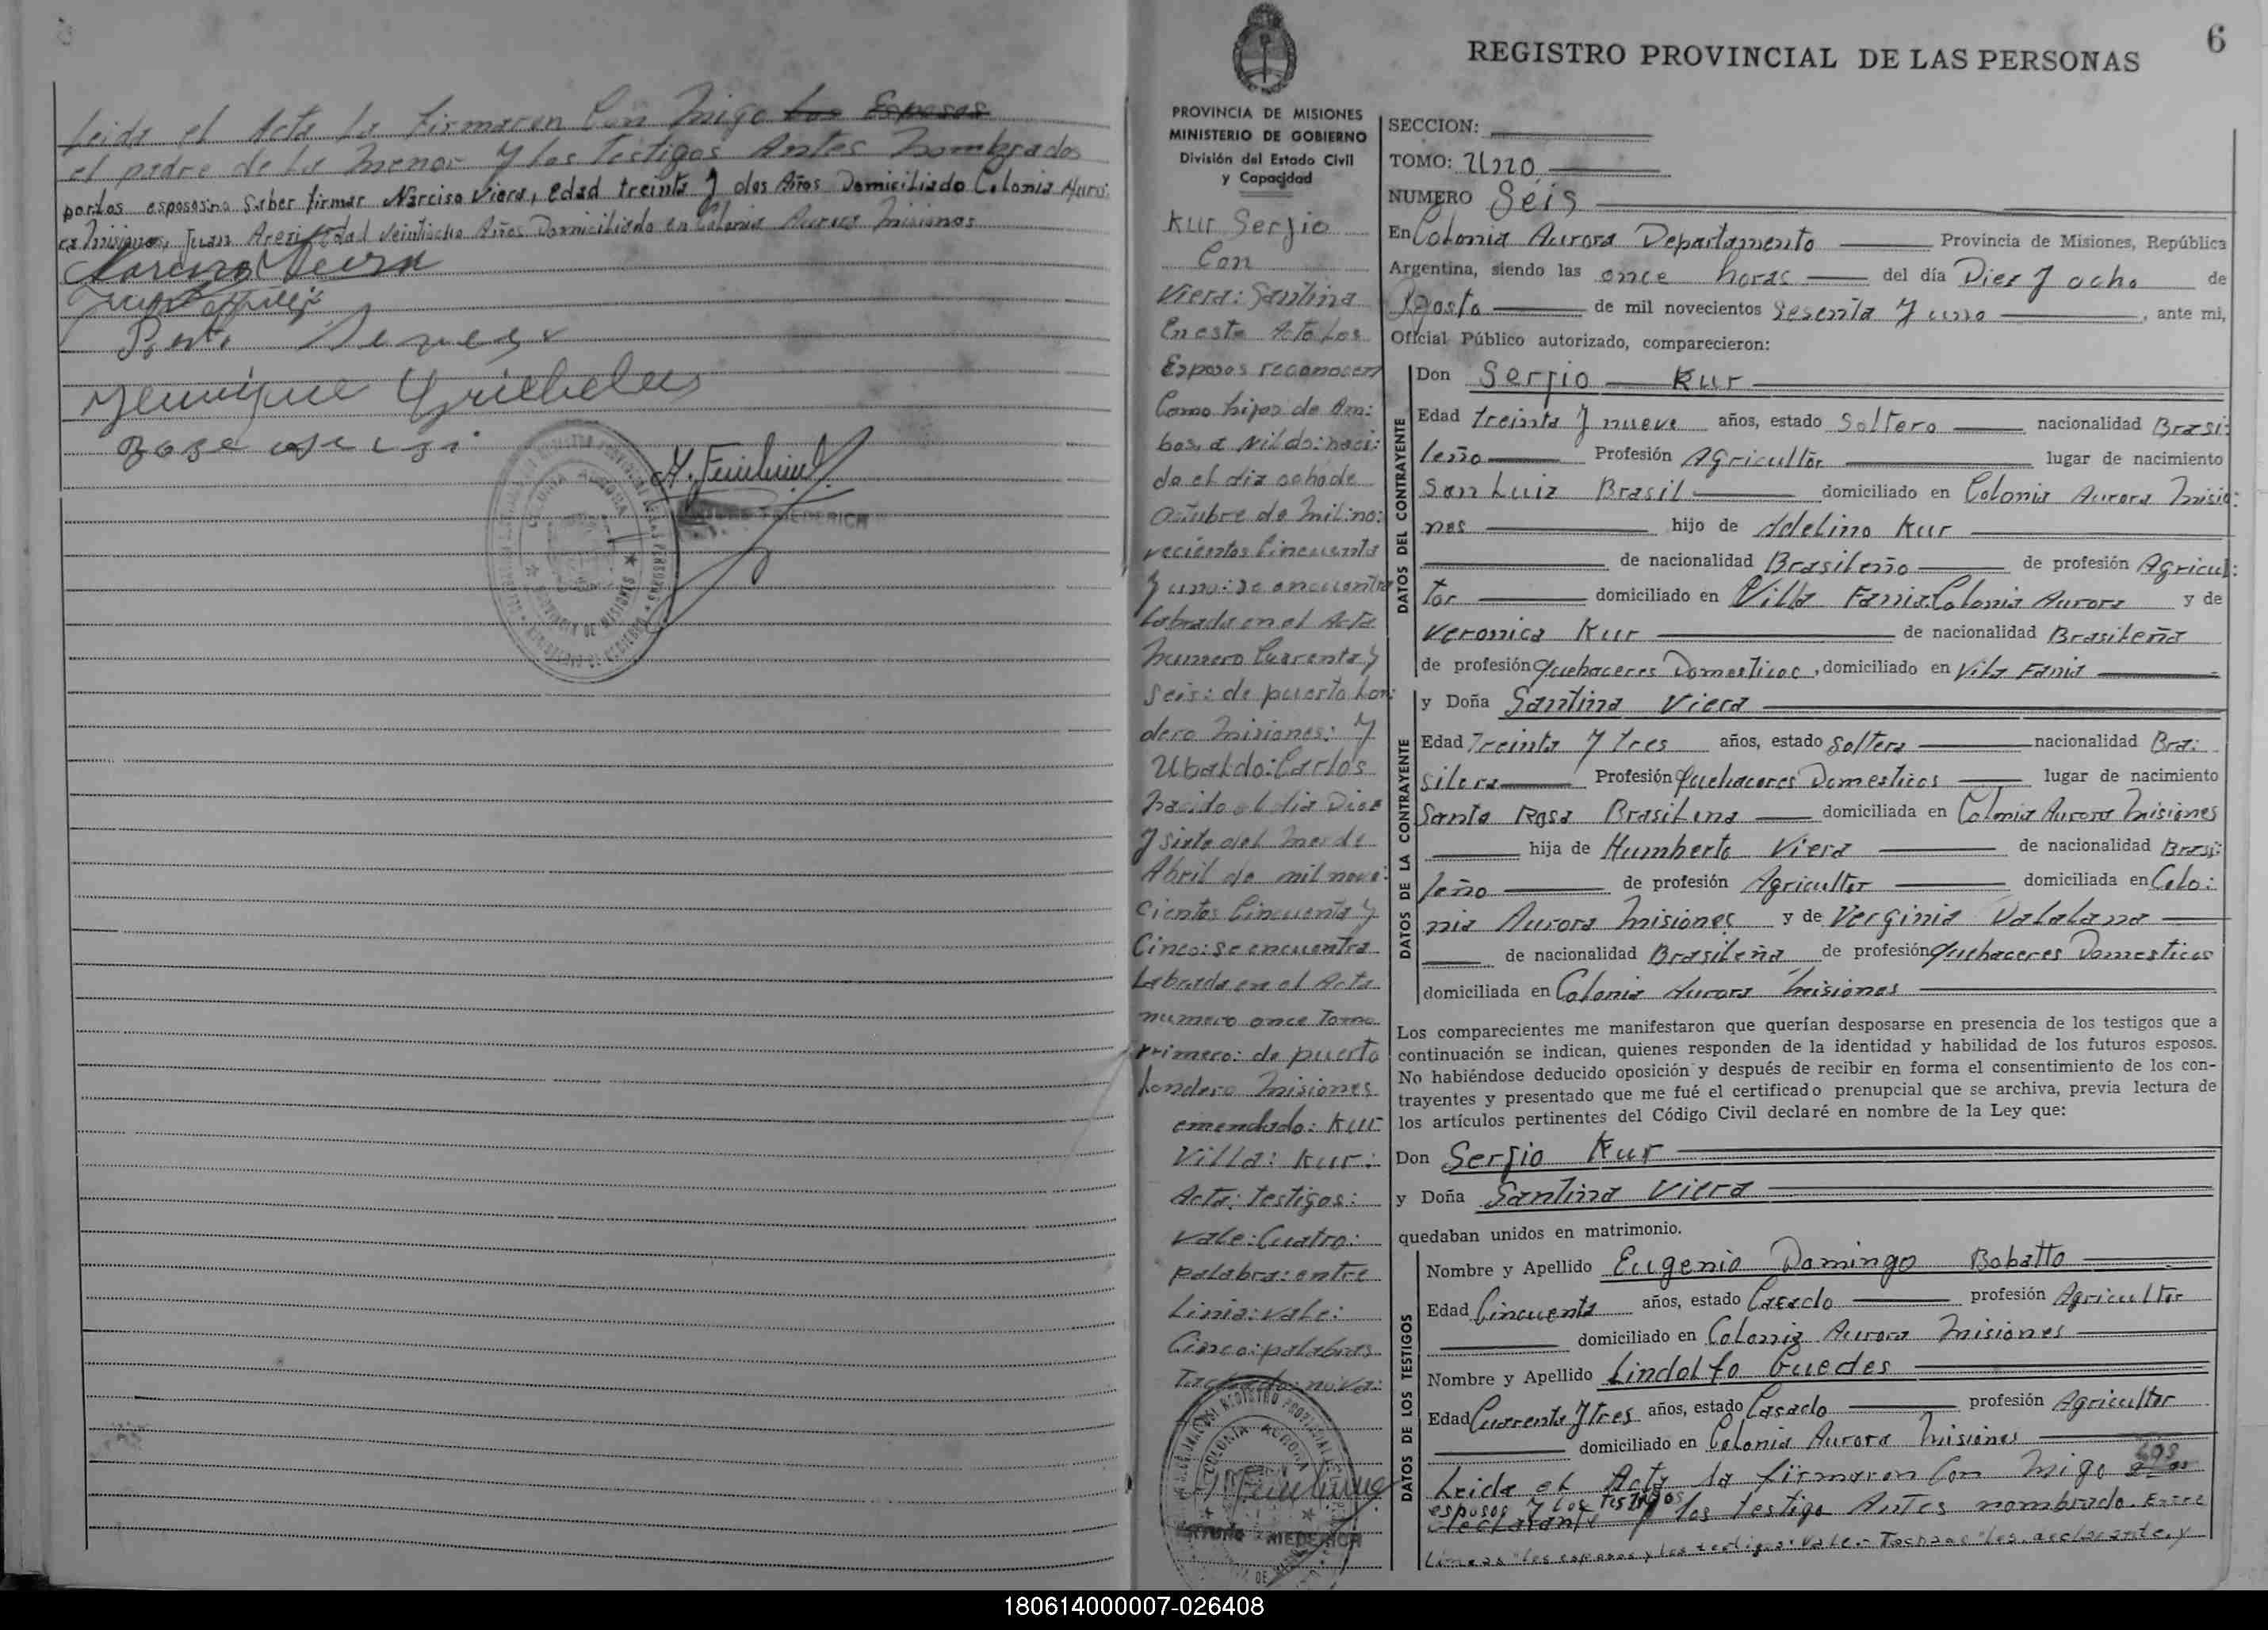 Leida el Acta la firmaron Con migo los Esposos
el padre de la menor y los Testigos Antes nombrados
por los esposos no Saber firmar Narciso Viera, edad treinta y dos Años Domiciliado Colonia Auro:
ra Misiones, Juan Edad Veintiocho Años Domiciliado en Colonia Aurora Misiones
Narciso Vieira
6
REGISTRO PROVINCIAL DE LAS PERSONAS
PROVINCIA DE MISIONES
MINISTERIO DE GOBIERNO
División del Estado Civil
y Capacidad
Kur Serjio
Con
Viera: Santina
En este Acto Los
Esposos reconocen
Como hijos de Am:
bos, a Nildo: naci:
do el dia ocho de
Octubre de Mil no:
vecientos Cincuenta
y uno: se encuentra
Labrada en el Acta
numero Cuarenta y
Seis: de puerto Lon:
dero Misiones: y
Ubaldo: Carlos
nacido el dia Dies
y siete del mes de
Abril de mil nove:
cientos Cincuenta y
Cinco: se encuentra
Labrada en el Acta
numero once Tomo
primero: de puerto
Londero Misiones
emendado: Kur
Villa: Kur:
Acta: Testigos:
vale: Cuatro:
palabra: entre
Linia: vale:
Cinco: palabras
SECCION:
TOMO: Uno
NUMERO Seis
En Colonia Aurora Departamento Provincia de Misiones, República
Argentina, siendo las once horas del día Dies y ocho de
Agosto de mil novecientos Sesenta y uno, ante mi,
Oficial Público autorizado, comparecieron:
DATOS DEL CONTRAYENTE
Don Serjio Kur
Edad treinta y nueve años, estado Soltero nacionalidad Brasi:
leño Profesión Agricultor lugar de nacimiento
San Luiz Brasil domiciliado en Colonia Aurora Misio:
nes hijo de Adelino Kur
de nacionalidad Brasileño de profesión Agricul:
tor domiciliado en Villa Fania Colonia Aurora y de
Veronica Kur de nacionalidad Brasileña
de profesión Quehaceres Domesticos, domiciliado en Vila Fania
DATOS DE LA CONTRAYENTE
y Doña Santina Viera
Edad Treinta y tres años, estado Soltera nacionalidad Bra:
silera Profesión Quehaceres Domesticos lugar de nacimiento
Santa Rosa Brasilena domiciliada en Colonia Aurora Misiones
hija de Humberto Viera de nacionalidad Brasi:
leño de profesión Agricultor domiciliada en Colo:
nia Aurora Misiones y de Verginia Valalana
de nacionalidad Brasileña de profesión Quehaceres Domesticos
domiciliada en Colonia Aurora Misiones
Los comparecientes me manifestaron que querían desposarse en presencia de los testigos que a
continuación se indican, quienes responden de la identidad y habilidad de los futuros esposos.
No habiéndose deducido oposición y después de recibir en forma el consentimiento de los con-
trayentes y presentado que me fué el certificado prenupcial que se archiva, previa lectura de
los artículos pertinentes del Código Civil declaré en nombre de la Ley que:
Don Serjio Kur
y Doña Santina Viera
quedaban unidos en matrimonio.
DATOS DE LOS TESTIGOS
Nombre y Apellido Eugenio Domingo Bobatto
Edad Cincuenta años, estado Casado profesión Agricultor
domiciliado en Colonia Aurora Misiones
Nombre y Apellido Lindolfo Guedes
Edad Cuarenta y tres años, estado Casado profesión Agricultor
domiciliado en Colonia Aurora Misiones
Leida el Acta la firmaron Con migo los
esposos y los testigos
declarante y los testigo Antes nombrado. Entre
lineas "los esposos y los testigos: vale.- Tachado "los declarante y
180614000007-026408